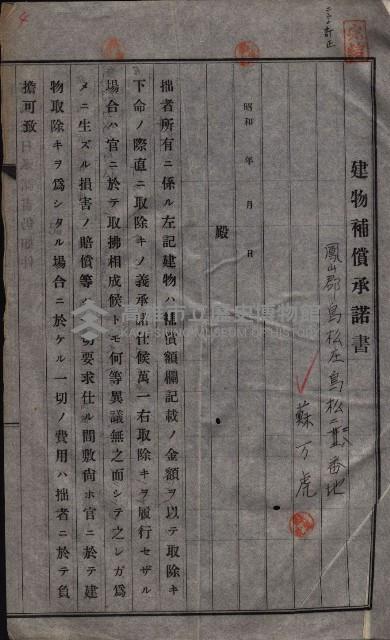 建物補償承諾書
鳳山郡鳥松庄鳥松二番地
蘇万虎
殿
昭和 年 月 日
拙者所有ニ係ル左記建物ハ補償額欄記載ノ金額ヲ以テ取除キ
下命ノ際直ニ取除キノ義承諾仕候萬一右取除キヲ履行セザル
場合ハ官ニ於テ取拂相成候トモ何等異議無之而シテ之レガ爲
メニ生ズル損害ノ賠償等ハ一切要求仕ル間敷尙ホ官ニ於テ建
物取除キヲ爲シタル場合ニ於ケル一切ノ費用ハ拙者ニ於テ負
擔可致